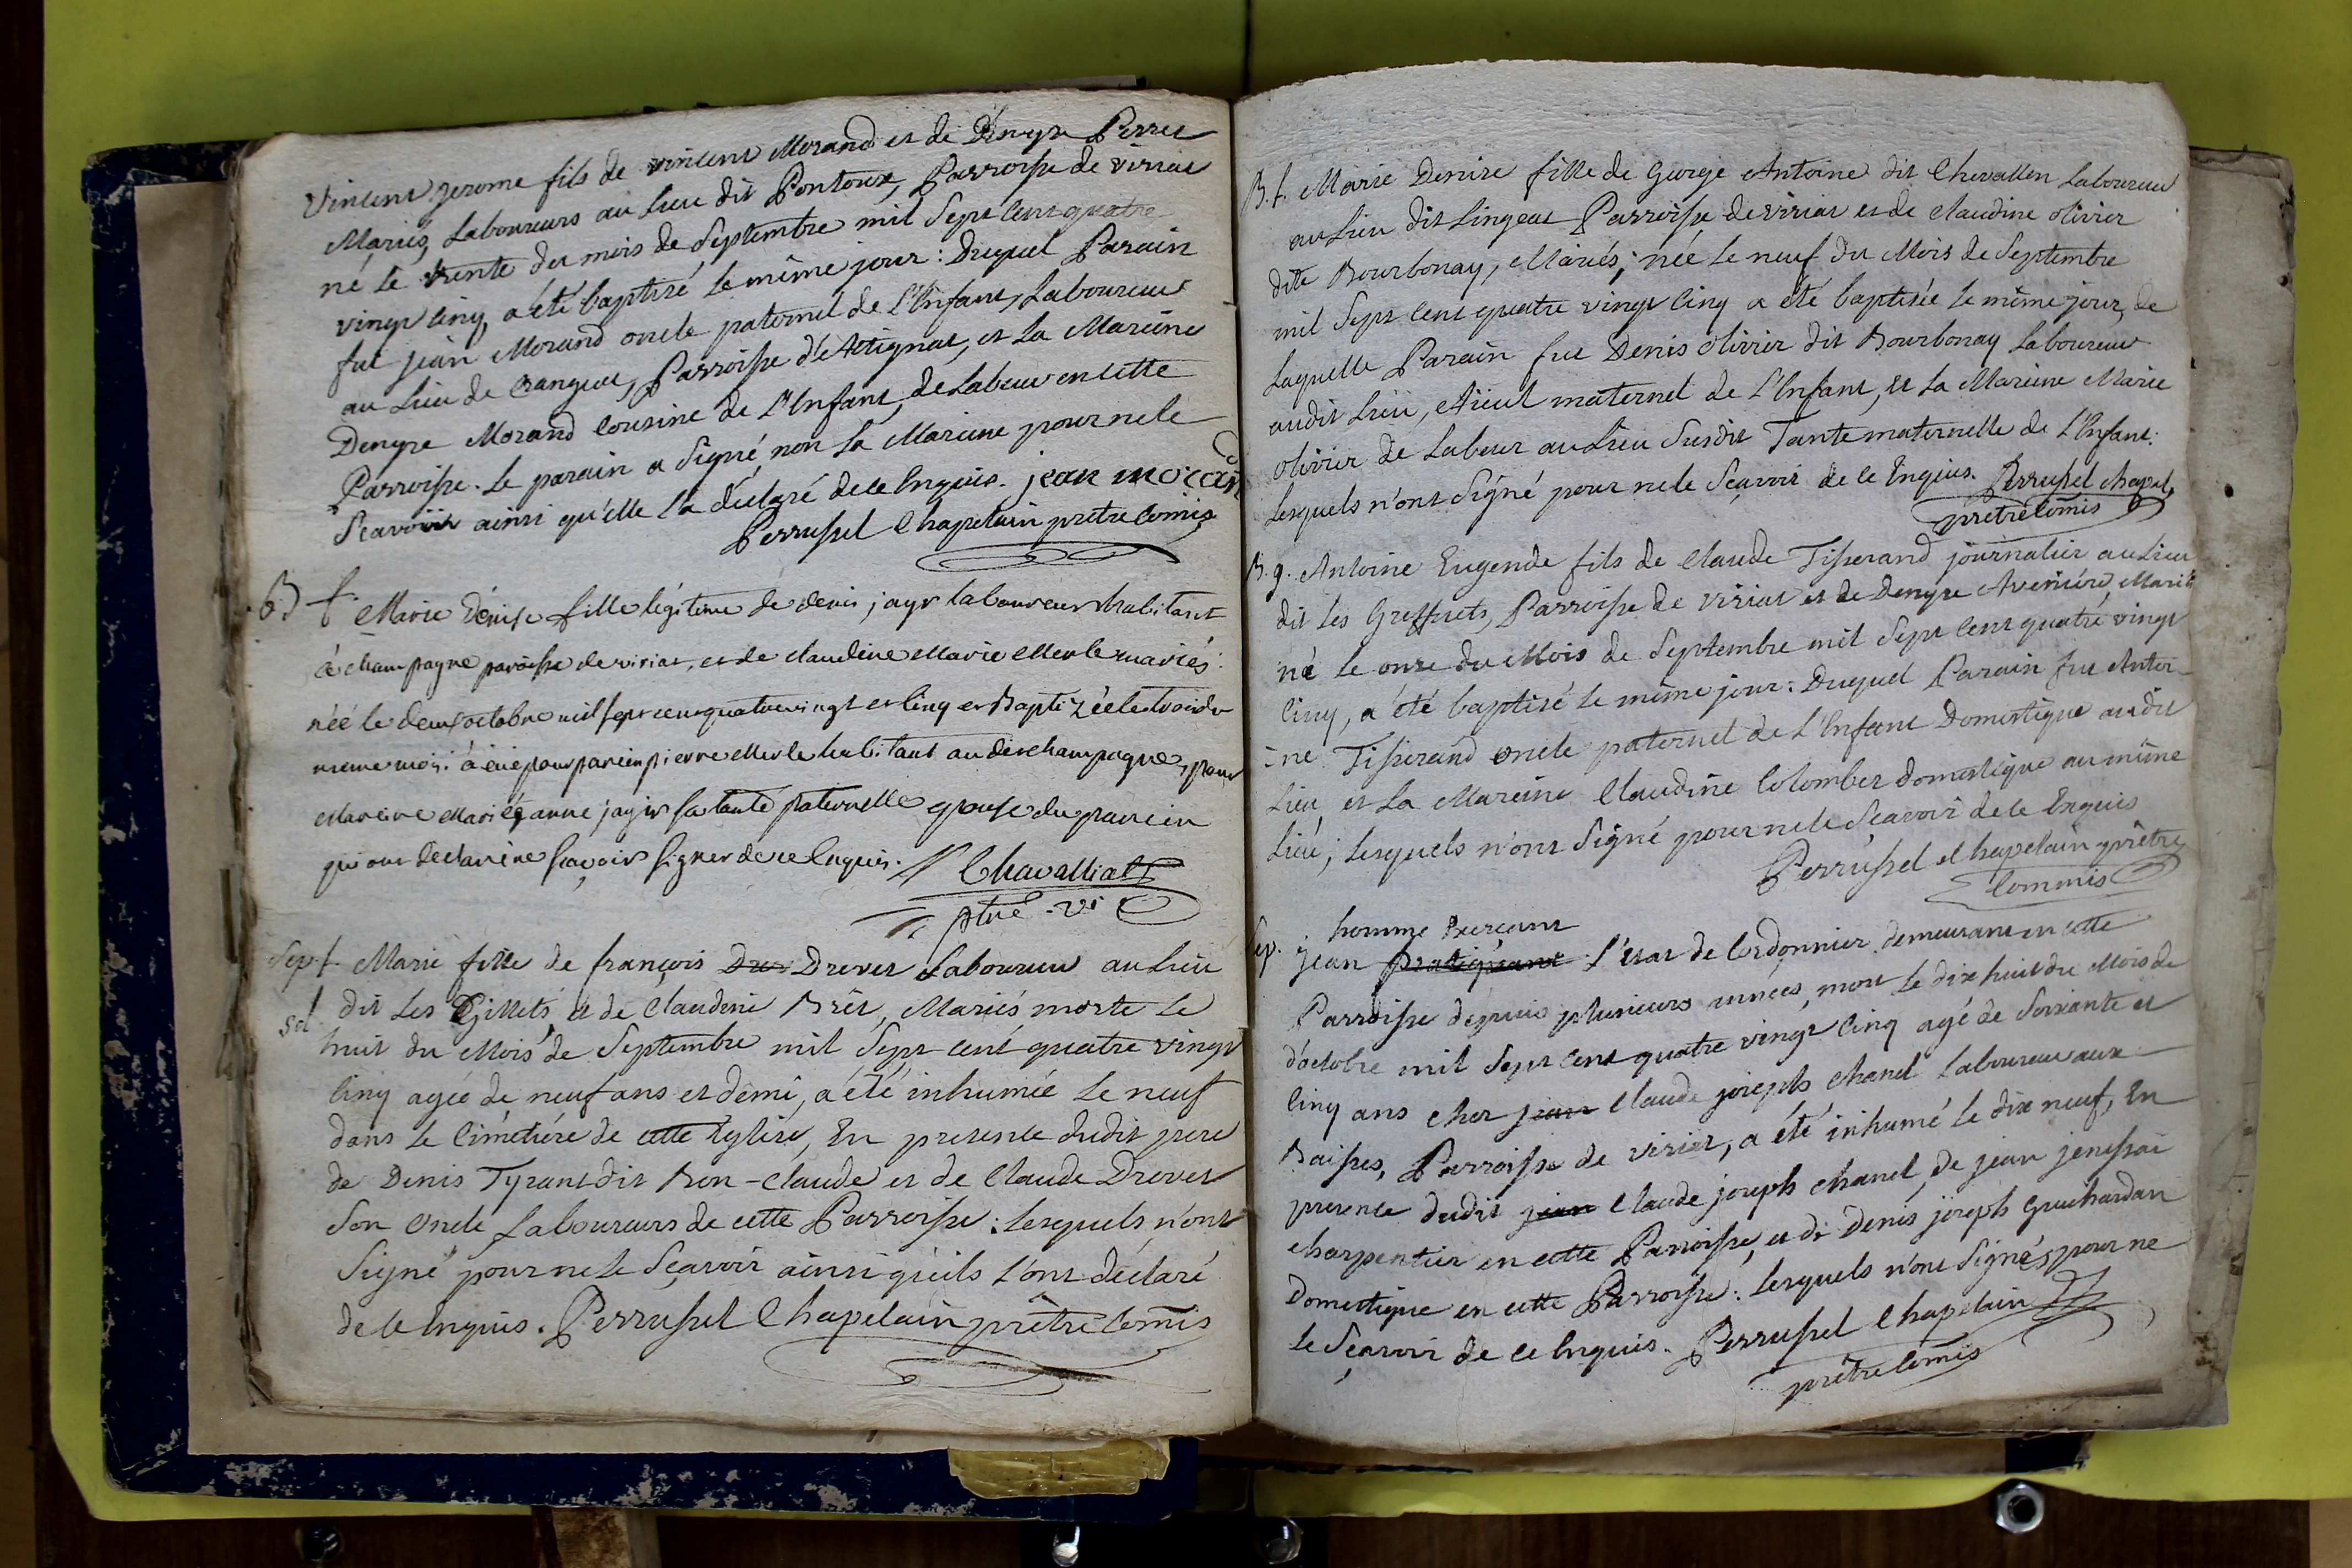 Vincent jerome fils de vincent Morand et de Denyse Perret
Mariés, Laboureurs au Lieu dit Pontoux, Parroisse de viriat
né le trente du mois de Septembre mil Sept Cent quatre
vingt Cinq, a été baptisé le même jour : Duquel Parain
fut jean Morand oncle paternel de l'Enfant, Laboureur
au Lieu de Cangeux, Parroisse d'Attignat, et la Mareine
Denyse Morand Cousine de l'Enfant, de Labeur en cette
Parroisse. Le parain a Signé, non la Mareine pour ne le
Scavoir ainsi qu'elle l'a déclaré de ce Enquis. jean morand
Perrussel Chapelain prêtre comis
B f. Marie Denise fille légitime de denis jayr laboureur habitant
à champagne paroisse de viriat, et de claudine Marie Merle mariés
néé le deux octobre mil sept cent quatre vingt et cinq et Baptizéé le trois du
meme moi. à éue pour parein pierre Merle habitant au dit champagne, pour
Mareine Marie anne jayr sa tante paternelle epouse du parein
qui ont declaré ne sçavoir signer de ce Enquis. Chavalliat
ptre . vi
Sep. f. Marie fille de françois Drev Drevet Laboureur au Lieu
sol dit Les Gillets, et de Claudine Brêt, Mariés morte le
huit du Mois de Septembre mil Sept cent quatre vingt
Cinq agée de neuf ans et demi, a été inhumée le neuf
dans le Cimetiére de cette Eglise, En presence dudit pere
de Denis Tyrant dit Bon-Claude et de Claude Drevet
Son Oncle Laboureurs de cette Parroisse : lesquels n'ont
Signé pour ne le Sçavoir ainsi qu'ils l'ont déclaré
de ce Enquis. Perrussel Chapelain prêtre comis
B. f. Marie Denise fille de George Antoine dit Chevallon Laboureur
au Lieu dit Lingeat Parroisse de viriat et de Claudine olivier
dite Bourbonay, Mariés ; née le neuf du Mois de Septembre
mil Sept Cent quatre vingt Cinq a été baptisée le même jour, de
Laquelle Parain fut Denis Olivier dit Bourbonay Laboureur
audit Lieu, Aïeul maternel de l'Enfant, et la Mareine Marie
Olivier de Labeur au Lieu Susdit Tante maternelle de l'Enfant :
Lesquels n'ont Signé pour ne le Sçavoir de ce Enquis. Perrussel chapel.
prêtre comis
B. g. Antoine Eugende fils de Claude Tisserand journalier au Lieu
dit les Greffets, Parroisse de viriat et de Denyse Aveniére, Mariés
né le onze du Mois de Septembre mil Sept Cent quatre vingt
Cinq, a été baptisé le même jour : Duquel Parain fut Antoi-
-ne Tisserand oncle paternel de l'Enfant Domestique audit
Lieu, et la Mareine Claudine Colomber domestique au même
Lieu ; lesquels n'ont Signé pour ne le Sçavoir de ce Enquis
Perrussel chapelain prêtre
Commis
homme Exerçant
Sep. j jean pratiquant l'Etat de Cordonnier demeurant en cette
Parroisse depuis plusieurs années, mort le dix huit du Mois de
d'octobre mil Sept Cent quatre vingt Cinq agé de Soixante et
Cinq ans chez jean Claude joseph chanel Laboureur aux
Baisses, Parroisse de viriat, a été inhumé le dix neuf, En
presence dudit jean Claude joseph chanel, de jean
charpentier en cette Parroisse, et de Denis joseph Guichardan
Domestique en cette Parroisse : lesquels n'ont Signés pour ne
le Sçavoir de ce Enquis. Perrussel Chapelain
prêtre comis